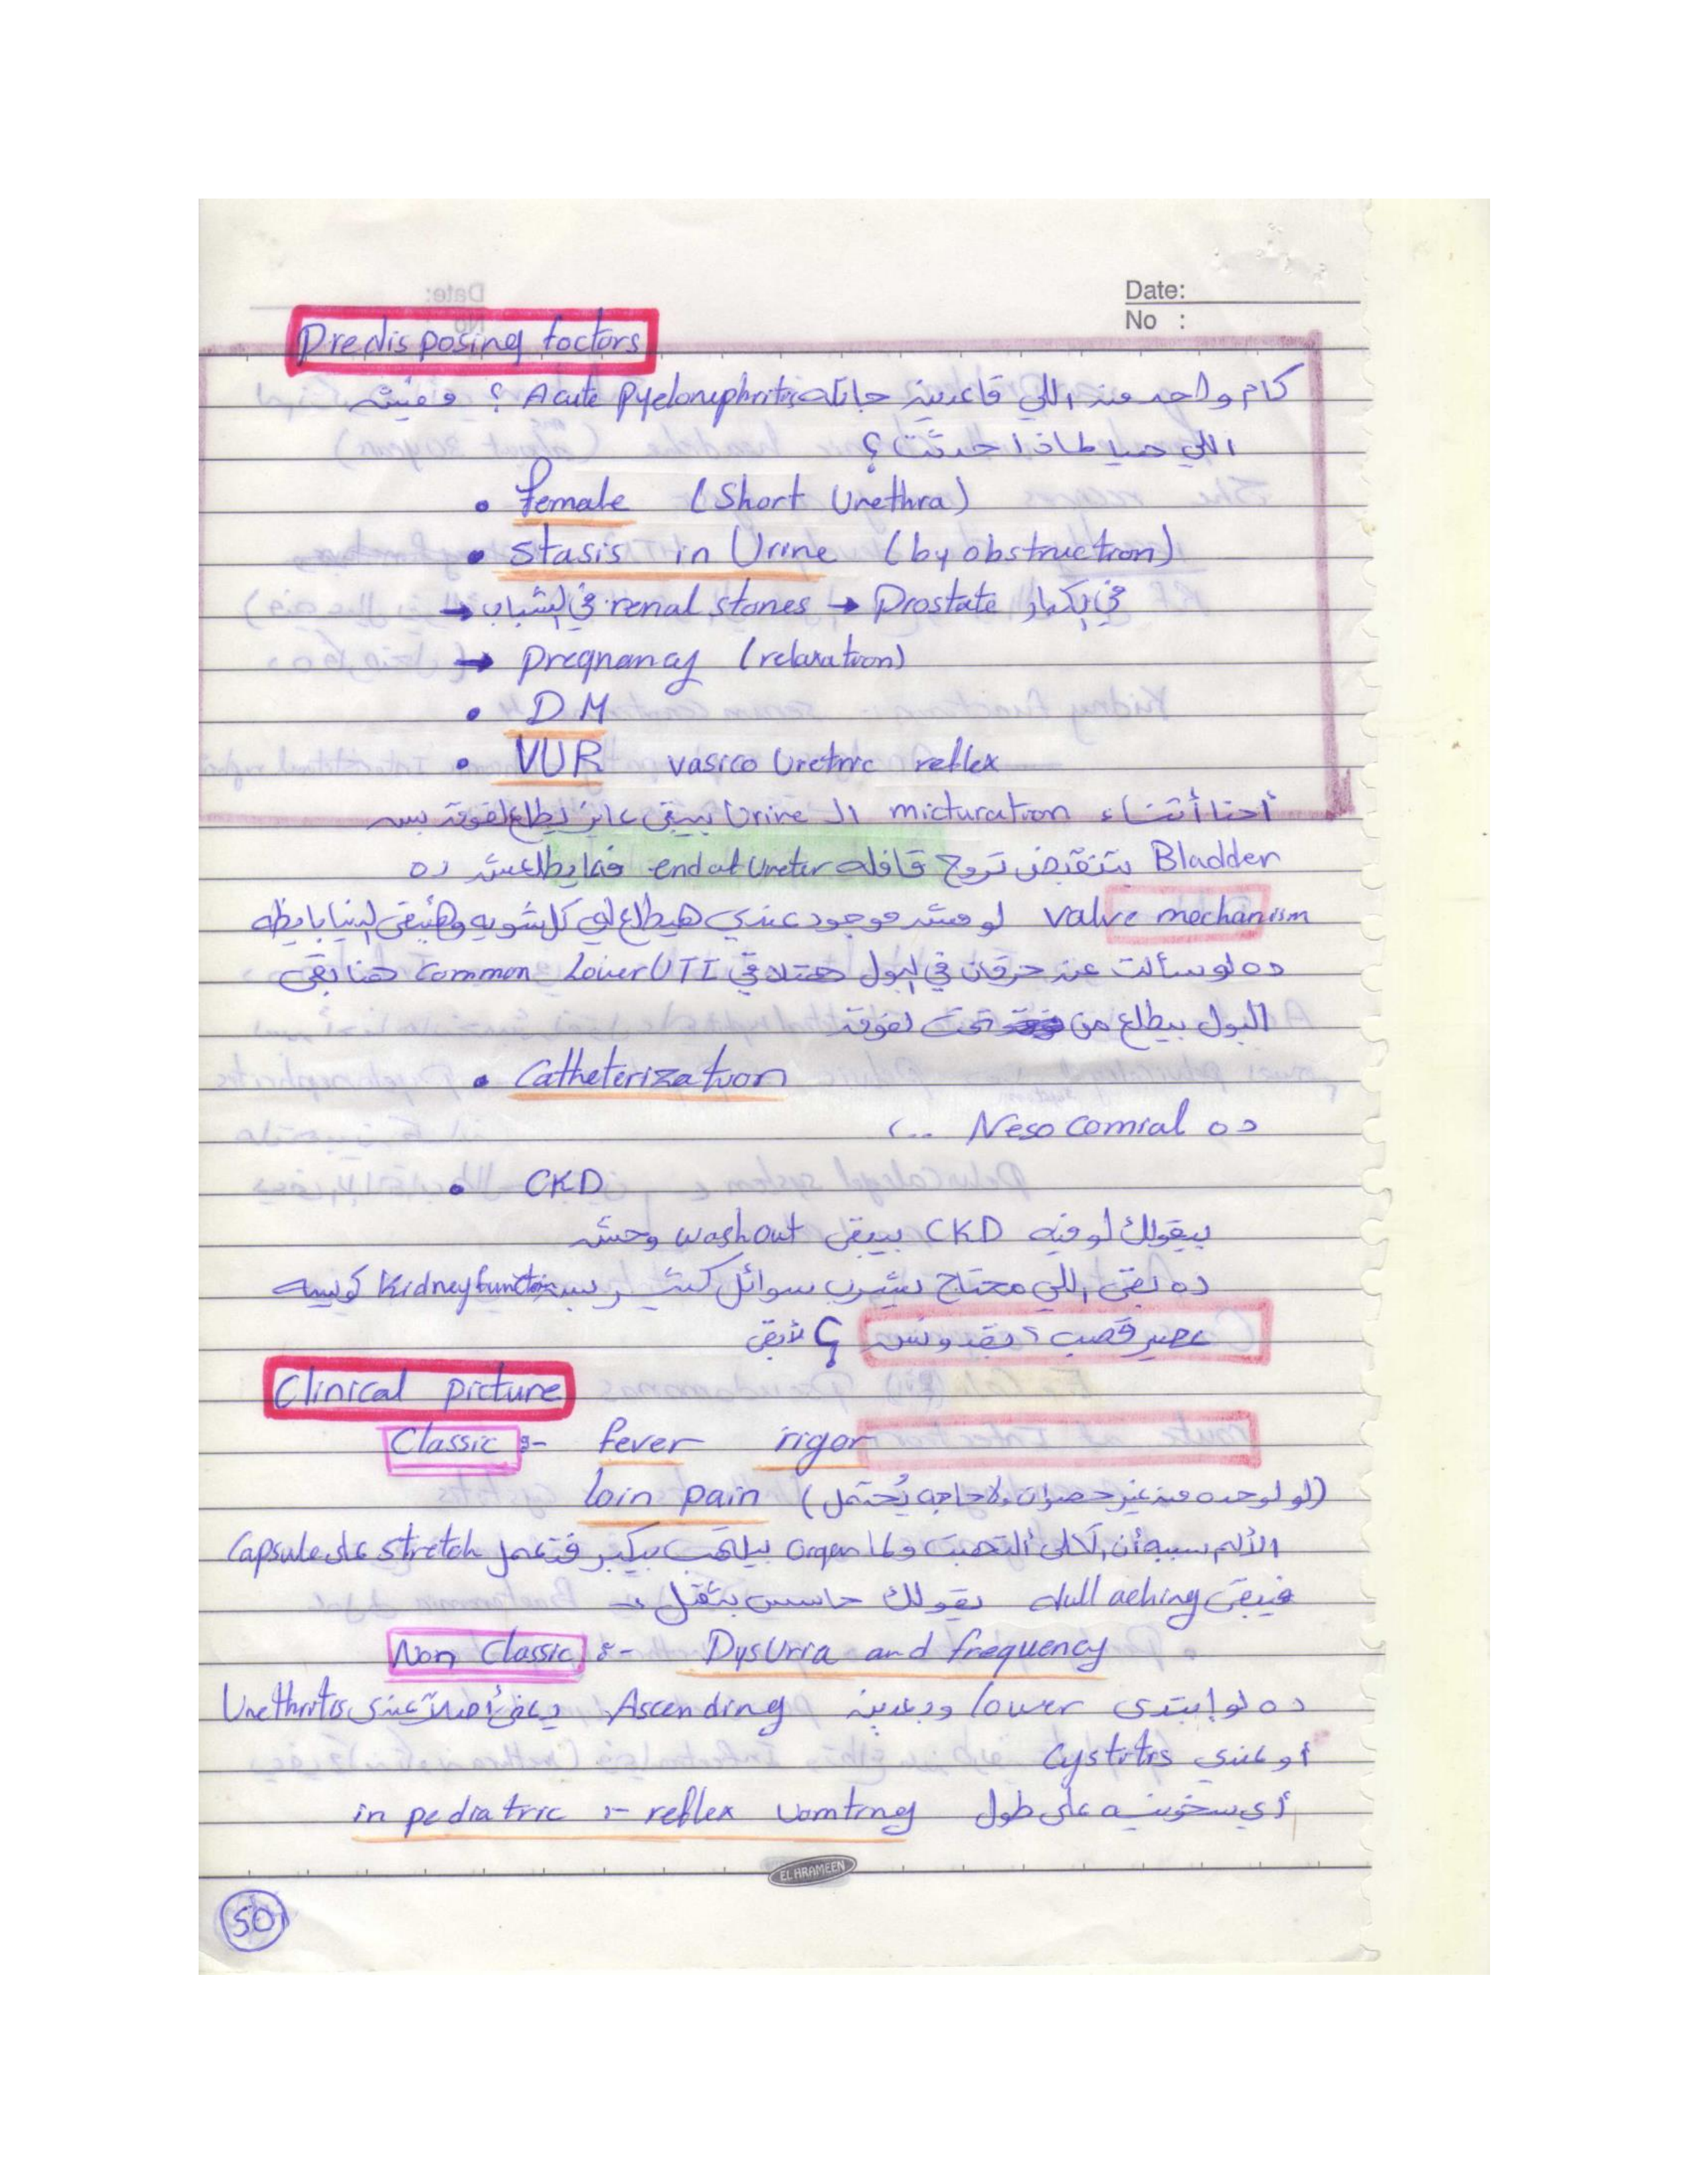 Date:
No :
Predisposing factors
كام واحد من اللي قاعدين جاتله Acute pyelonephritis ؟ مفيش
اللي هيا لماذا حدثت ؟
• female (Short Urethra)
• stasis in Urine (by obstruction)
→ renal stones في الشباب → Prostate في الكبار
→ pregnancy (relaxation)
• DM
• VUR vasico Uretric reflex
أحنا أثناء micturation الـ Urine بيبقى عايز يطلع لفوق بس
Bladder بتنقبض تروح قافله end at Ureter فمايطلعش ده
valve mechanism لو مش موجود عندي هيطلع لي كل شويه وهتبقى الدنيا بايظه
ده لو سألت عن حرقان في البول هتلاقي Common Lower UTI هنا بقى
البول بيطلع من تحت لفوق
• Catheterization
ده Nesocomial ...
• CKD
بيقولك لو فيه CKD بيبقى washout وحش
ده بقى اللي محتاج يشرب سوائل كتير بس Kidney function كويسه
عصير قصب ؟ بقدونس ؟ لأبقى
Clinical picture
Classic :- fever rigor
loin pain (لو لوحده من غير حصوات ولا حاجه يُحتمل)
الألم سببه أن الكلى ألتهبت ولما organ بيلتهب بيكبر فتعمل stretch على Capsule
فيبقى dull aching يقولك حاسس بتقل
Non Classic :- DysUria and frequency
ده لو إبتدى lower وبعدين Ascending يعني أصلاً عندى Urethritis
أو عندي Cystitis
أي سخونيه على طول in pediatric :- reflex vomting
EL HRAMEEN
50